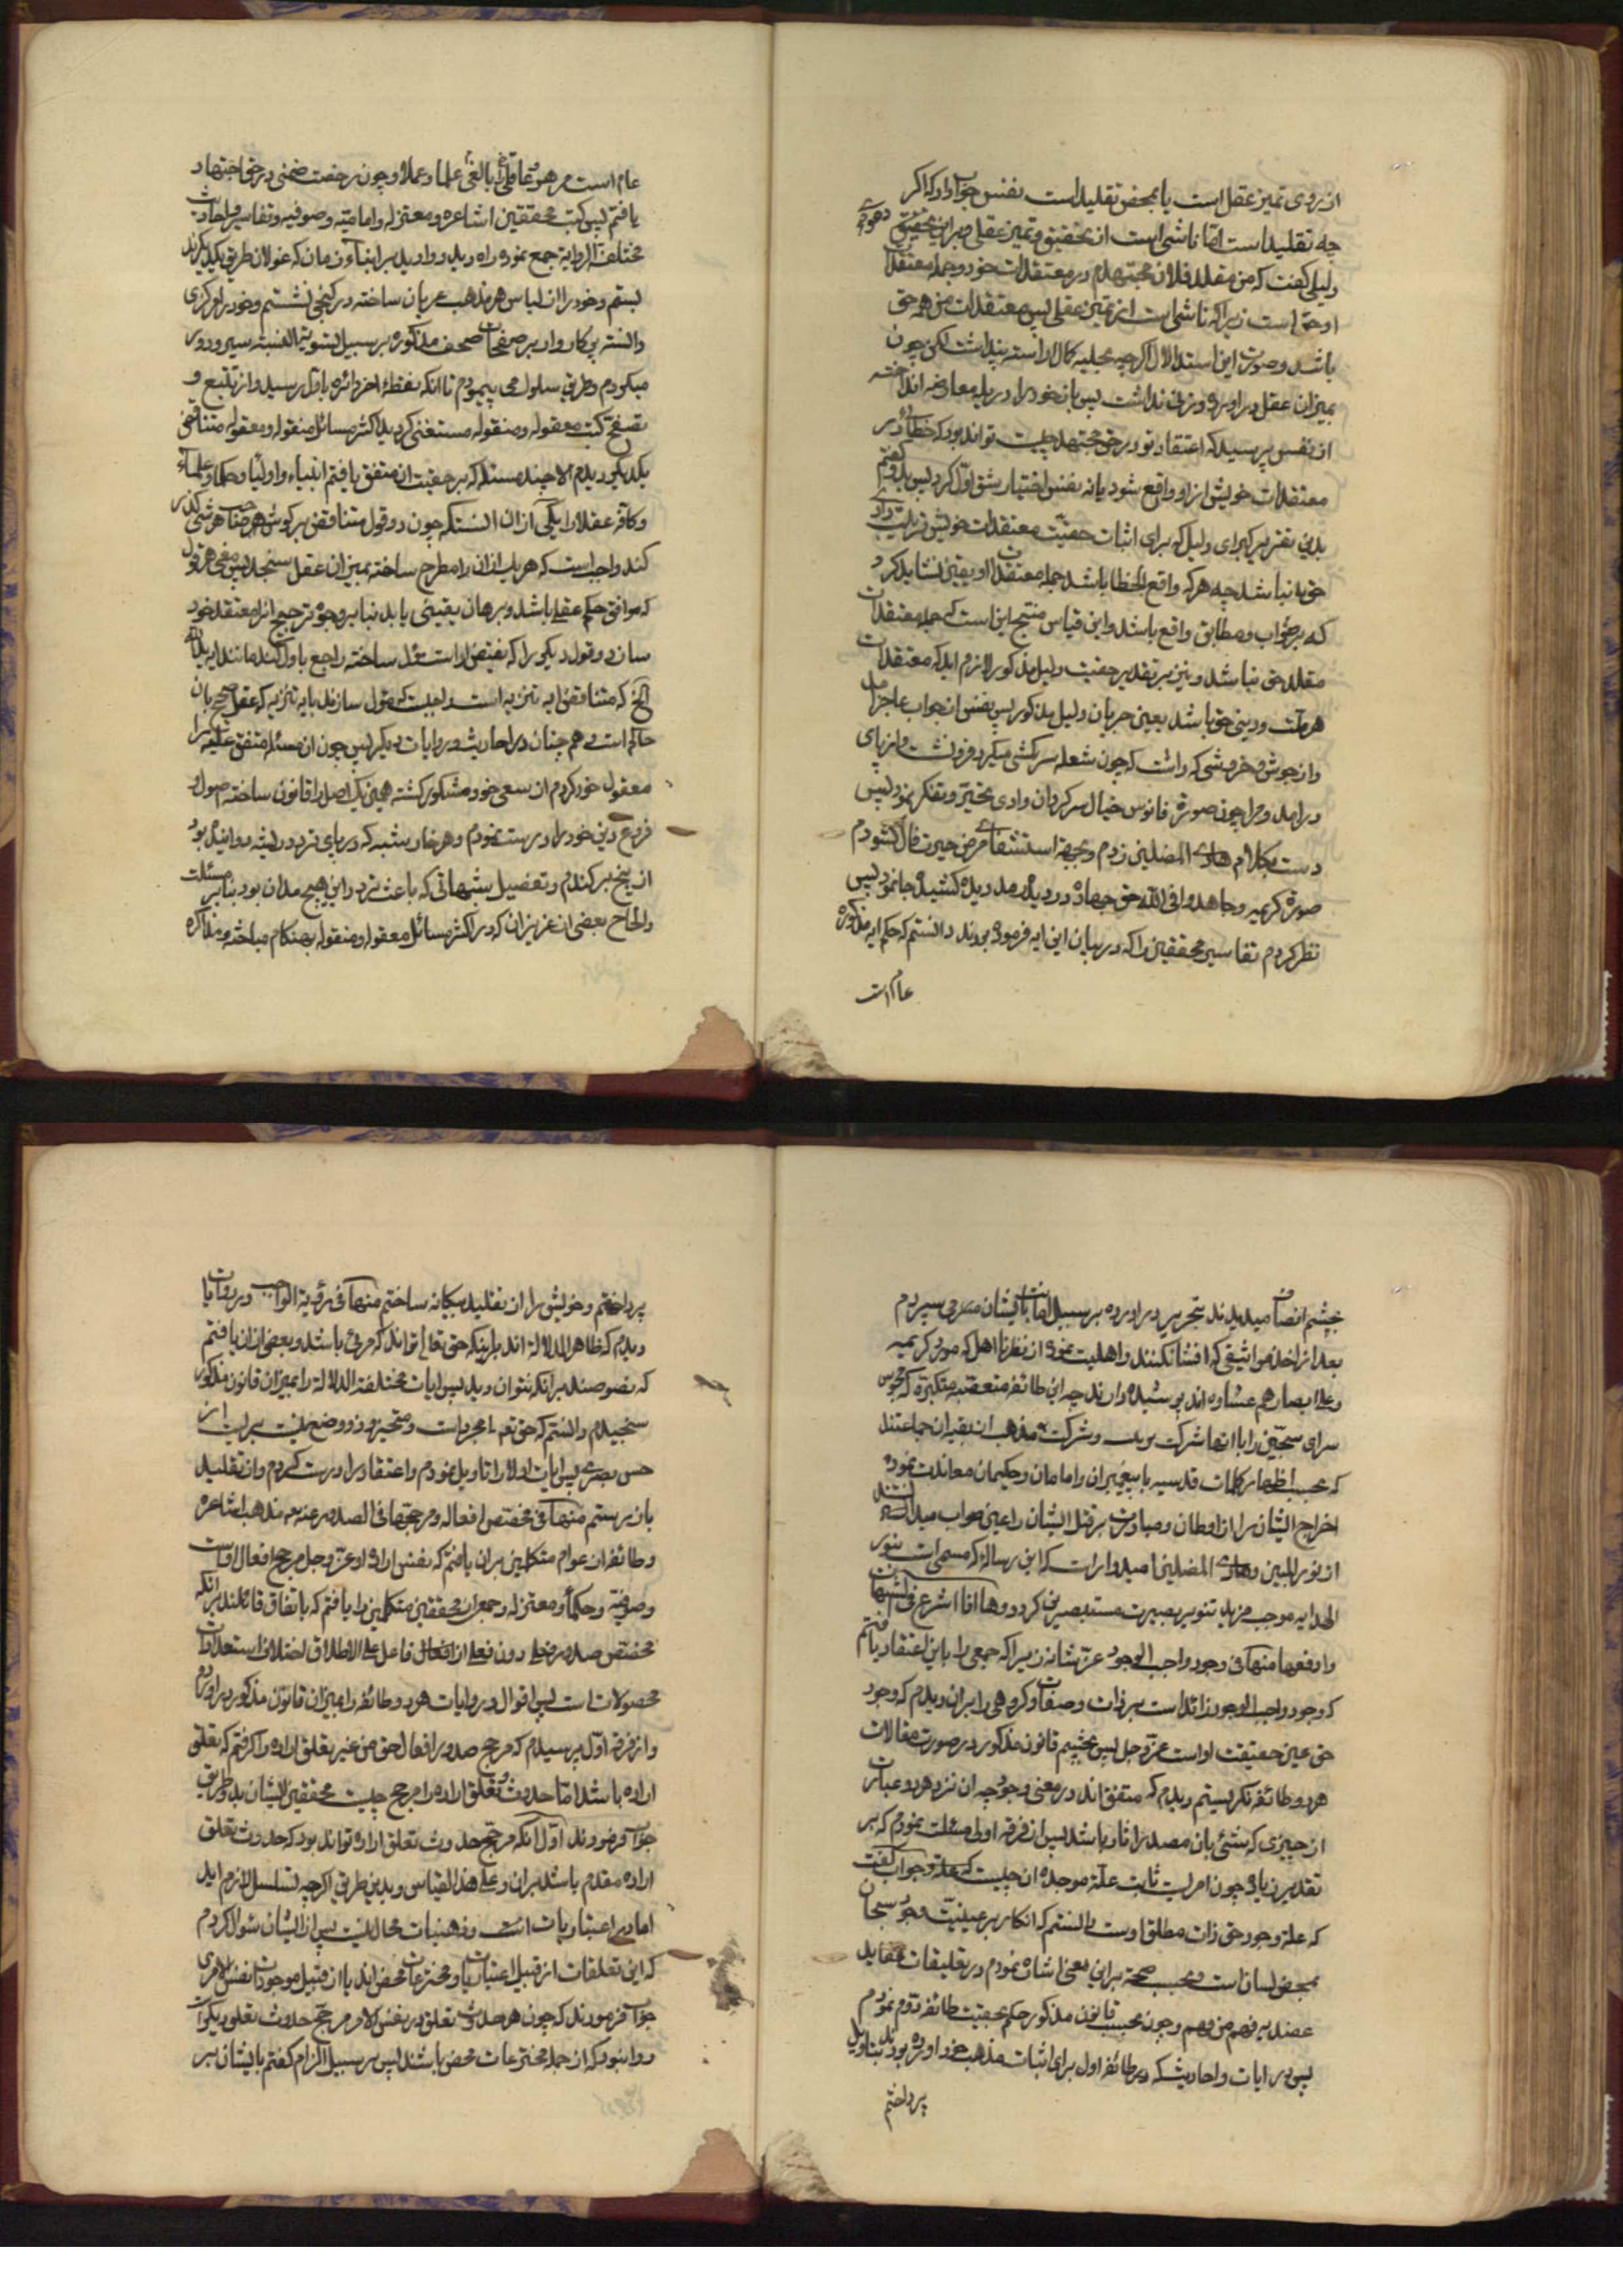 از روی تمیز عقل است یا بمحض تقلید است نفس جواب داد که اکر
چه تقلید است امّا ناشی است از تحقیق و تمیز عقلی و برای تحقیق دعوی
دلیلی کفت که من مقلد فلان مجتهدم در معتقدات خود و جمله معتقدات
او حق است زیرا که ناشی است از تمیز عقلی پس معتقدات من همه حق
باشد و صورت این استدلال اکرچه بحلیه کمال اراسته پنداشت لکن چون
بمیزان عقل در اورد وزنی نداشت پس بان خود را در پله معارضه انداخته
از نفس پرسید که اعتقاد تو در حق مجتهد چیست تواند بود که خطا در
معتقدات خویش از او واقع شود یا نه نفس اختیار شق اوّل کرد پس بدو کفتم
بدین تقدیر کبرای دلیل که برای اثبات حقیّت معتقدات خویش ترتیب داده
حق نباشد چه هر که واقع الخطا باشد جمله معتقدات او یقین نشاید کرد
که بر صواب و مطابق واقع باشد و این قیاس منتج این است که جمله معتقدات
مقلد حق نباشد و نیز بر تقدیر حقیت دلیل مذکور لازم اید که معتقدات
هر ملت و دینی حق باشد بعین جریان دلیل مذکور پس نفس از جواب عاجز امد
و از جوش و خروشی که داشت که چون شعله سرکشی میکرد فرو نشست و از پای
در امد و مرا چون صورة فانوس خیال سرکردان وادی تحیّر و تفکر نمود پس
دست بکلام هادی المضلین زدم و بجهة استشفای مرض حیرت فال کشودم
صورة کریمه و جاهدوا فی الله حق جهاده در دیده رمد دیده کشیده جا نمود پس
نظر کردم تفاسیر محققین را که در بیان این ایه فرموده بودند دانستم که حکم ایه مذکوره
عام است
عام است مر هر عاقلی بالغی علما و عملا و چون رخصت ضمنی در حق اجتهاد
یافتم پس کتب محققین اشاعره و معتزله و امامیه و صوفیه و تفاسیر و احادیث
مختلف الروایة جمع نموده راه دید و وادید بر ابناء زمان که غولان طریق یکدیکرند
بستم و خود را از لباس هر مذهب عریان ساخته در کنجی نشستم و خود را مرکزی
دانسته پرکار وار بر صفحات صحف مذکوره بر سبیل تسویة النسبة سیر و دور
میکردم و طریق سلول می پیمودم تا انکه نقطهٔ اخر دائره باوّل رسید و از تتبع و
تصفح کتب معقوله و منقوله مستغنی کردید اکثر مسائل منقوله و معقوله متناقض
یکدیکر دیدم الا چند مسئله که بر حقیت ان متفق یافتم انبیاء و اولیا و حکما و علماء
و کافه عقلا را یکی از ان انستکه چون دو قول متناقض بر کوش هر صاحب هوشی کذر
کند واجب است که هر یک از ان را مطرح ساخته بمیزان عقل سنجد پس معنی هر قول
که موافق حکم عقل باشد و برهان یقینی یابد بنابر وجوه ترجیح انرا معتقد خود
سازد و قول دیکر را که نقیض او است ماول ساخته راجع باول کند مانند ایه ید الله
الخ که متناقض ایه تنزیه است واجبست که ماول سازند بایه تنزیه که عقل صحیح بان
حاکم است و هم چنان در احادیث و روایات دیکر پس چون این مسئله متفق علیه را
معقول خود کردم از سعی خود مشکور کشته همین یک اصل را قانون ساخته اصول و
فروع دین خود را درست نمودم و هر خار شبهه که در پای تردد ریشه دوانیده بود
از بیخ بر کندم و تفصیل شبهاتی که باعث تردد این هیچ مدان بود بنابر مسئلت
و الحاح بعضی از عزیزان که در اکثر مسائل معقوله و منقوله بهنکام مباحثه و مذاکره
بچشم انصاف میدیدند بتحریر در اورده بر سبیل امانت بایشان می سپردم
بعد از اخذ مواثیقی که افشا نکنند و اهلیت نموده از نظر نااهل که مورد کریمه
و علی ابصارهم غشاوه اند پوشیده دارند چه این طائفه متعصّبه متکبّره که محبوس
سرای سجّین را با انها شرکت بود و شرکت مذهب از بقیه ان جماعتند
که بسبب اظهار کلمات قدسیه با پیغمبران و امامان و حکیمان معاندت نموده
اخراج ایشان را از اوطان و مبادرت بر قتل ایشان را عین صواب میدانستند
از نور المبین و هادی المضلین امیدوار است که این رساله که مسمی است بنور
الهدایه موجب مزید تنویر بصیرت مستبصرین کردد و ها انا اشرع فی الشبهات
و ادفعها منها فی وجود واجب الوجود عزّ شانه زیرا که جمعی را باین اعتقاد یافتم
که وجود واجب الوجود زائد است بر ذات و صفات و کروهی را بران دیدم که وجود
حق عین حقیقت او است عزّ و جل پس بچشم قانون مذکور در صورت مقالات
هر دو طائفه نکریستم دیدم که متفق اند در معنی وجود چه ان نزد هر دو عبارت
از چیزی که شئ بان مصدر اثار باشد پس از فرقه اولی مسئلت نمودم که بر
تقدیر زیاده چون امریست ثابت علّة موجده ان چیست که علة وجود ان کفت
که علة وجود حق ذات مطلق اوست دانستم که انکار بر عینیّت وجود سبحان
بمحض لسان است و بحسب صحة بر این معنی اشاره نمودم و در تعلیقات عقاید
عضدیه فهم من فهم و چون بحسب قانون مذکور حکم بحقیت طائفه دوّم نمودم
پس در ایات و احادیث که طائفه اول برای اثبات مذهب خود اورده بودند بتاویل
پرداختم
پرداختم و خویش را از تقلید بیکانه ساختم منها فی رؤیة الواجب در روایات
دیدم که ظاهر الدلالة اند بر اینکه حق تعالی تواند که مرئی باشد و بعضی از ان یافتم
که نصوصند بر انکه نتوان دید پس ایات مختلفة الدلالة را بمیزان قانون مذکور
سنجیدم دانستم که حق تعه مجرد است و متحیز و ذو وضع نیست بری است از
حس بصری پس ایات اولا را تاویل نمودم و اعتقاد را درست کردم و از تقلید
بان برستم منها فی مختص افعاله و مرجحها فی الصدور عنه تعه مذهب اشاعره
و طائفه از عوام متکلمین بران یافتم که نفس اراده او عزّ و جل مرجح افعال اوست
و صوفیه و حکما و معتزله و جمعی از محققین متکلمین را یافتم که باتفاق قائلند بر انکه
مختص صدور فعلی دون فعلی از افعال فاعل علی الاطلاق اختلاف استعدادات
محصولات است پس اقوال و روایات هر دو طائفه را بمیزان قانون مذکور در اوردم
و از فرقه اوّل پرسیدم که مرجح صدور افعال حق من غیر تعلق اراده را کرفتم که تعلق
اراده باشد امّا حدوث تعلق اراده را مرجح چیست محققین ایشان بدو طریق
جواب فرمودند اوّل انکه مرجّح حدوث تعلق اراده تواند بود که حدوث تعلق
اراده مقدم باشد بران و علی هذا القیاس و بدین طریق اکرچه تسلسل لازم اید
اما در اعتباریات است و ذهنیات محال نیست پس از ایشان سؤال کردم
که این تعلقات از قبیل اعتباریات و مخترعات محض اند یا از قبیل موجودات نفس الامری
جواب فرمودند که چون هر حدوث تعلق در نفس الامر مرجّح حدوث تعلق دیکر است
روا نبود که از جمله مخترعات محض باشد پس بر سبیل الزام کفتم بایشان بر